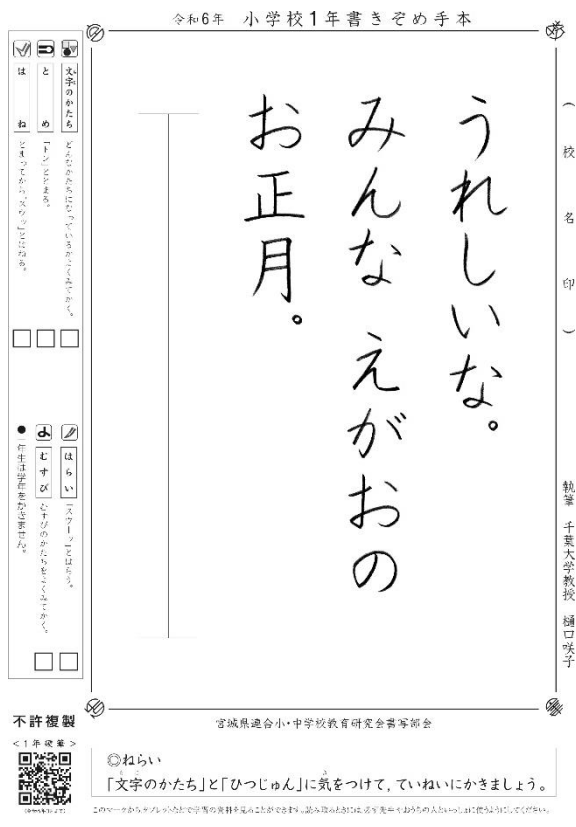 令和6年 小学校1年書きぞめ手本
（校名印）
うれしいな。
みんな えがおの
お正月。
執筆 千葉大学教授 樋口咲子
文字のかたち どんなかたちになっているかよくみてかく。
とめ 「トン」ととまる。
はね とまってから「スウッ」とはねる。
はらい 「スウーッ」とはらう。
むすび むすびのかたちをよくみてかく。
●一年生は学年をかきません。
宮城県連合小・中学校教育研究会書写部会
不許複製
<1年硬筆>
◎ねらい
「文字のかたち」と「ひつじゅん」に気をつけて，ていねいにかきましょう。
このマークからタブレットなどで学習の資料を見ることができます。読み取るときには、必ず先生やおうちの人といっしょに使うようにしてください。